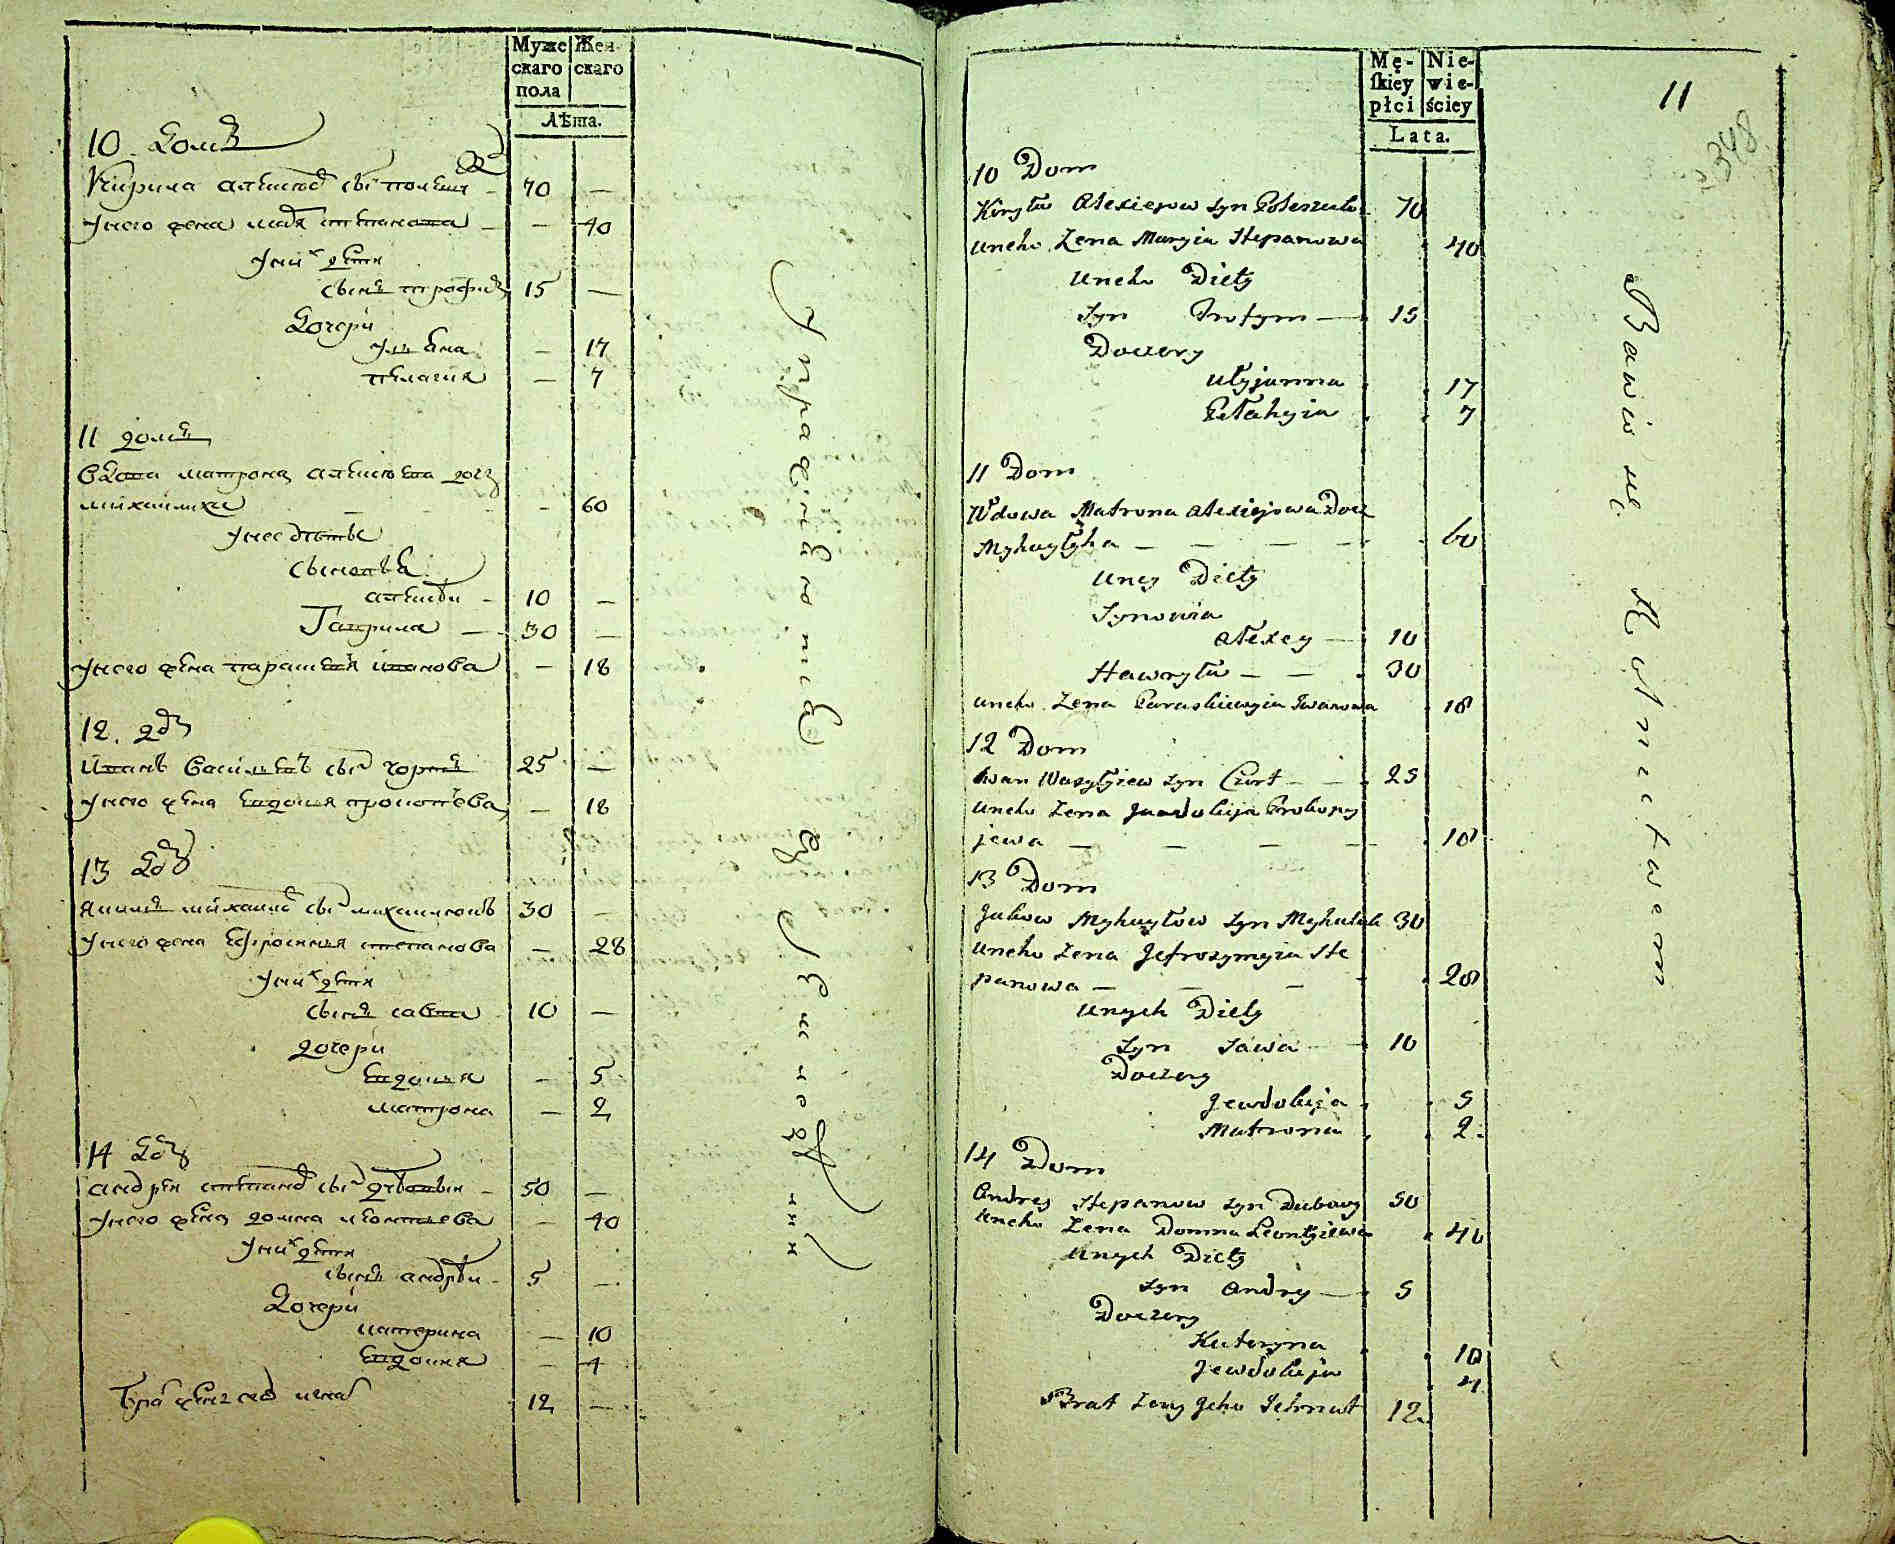 Муже
скаго
пола
Жен-
скаго
Лѣта.
10 Домъ
Кирила Алексѣевъ сынъ
70 —
у него жена Марія Степанова — 40
у них дети
сынъ Трофимъ 15 —
Дочери
Ульяна — 17
Пелагия — 7
11 домъ
Вдова Матрона Алексѣева дочь
Михайлиха — 60
у нее дѣти
Сыновья
Алексѣй 10 —
Гаврила — 30 —
у него жена Параскевия Иванова — 18
12. до
Иванъ Васильевъ сынъ Чортъ 25 —
у него жена Евдокия Прокопьева — 18
13 до
Якимъ Михайловъ сынъ 30 —
у него жена Ефросиния Степанова — 28
у них дети
сынъ Савва 10 —
дочери
Евдокия — 5
Матрона — 2
14 до
Андрей Степановъ сынъ Дубовый 50 —
у него жена Домна Леонтьева — 40
у них дети
сынъ Андрѣй 5 —
Дочери
Катерина — 10
Евдокия — 4
Брат жены его Игнат 12 —
Упражняются
Земледелием
Mę-
skiey
płci
Nie-
wie-
ściey
Lata.
11
348
10 Dom
Kiryło Alexiejow syn Poleszuk 70
uneho Zena Maryia Stepanowa 40
uneho Diety
Syn Trofym — 15
Doczery
Ulyjanna 17
Pełahyia 7
11 Dom
Wdowa Matrona Alexiejowa Docz
Myhayłyha — — — — 60
uney Diety
Synowia
Alexey — 10
Hawryło — — 30
uneho Zena Paraskiewyia Iwanowa 18
12 Dom
Iwan Wasylyiew syn Czort — — 25
uneho Zena Jewdokija Prokopy
jewa — — — — 18
13 Dom
Jakow Myhayłow syn Myhaluk 30
uneho Zena Jefrozymyia Ste
panowa — — — 28
unych Diety
Syn Sawa — 10
Doczery
Jewdokija 5
Matrona 2
14 Dom
Andrey Stepanow syn Dubowy 50
uneho Zena Domna Leontyiewa 40
unych Diety
Syn Andry — 5
Doczery
Kateryna 10
Jewdokija 4
Brat Zeny Jeho Ichnat 12
Bawią się Rolnictwem